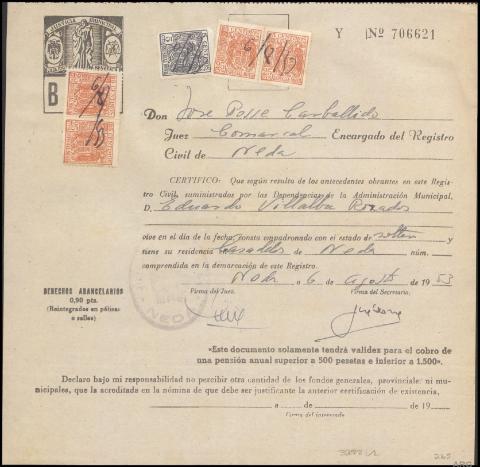 JUSTICIA MUNICIPAL
Y Nº 706621
B
6/8/53
Don Jose Posse Carballido
Juez Comarcal Encargado del Registro
Civil de Neda
CERTIFICO: Que según resulta de los antecedentes obrantes en este Regis-
tro Civil, suministrados por las Dependencias de la Administración Municipal,
D. Eduardo Villalba Rosados
vive en el día de la fecha, consta empadronado con el estado de y
tiene su residencia de Neda núm.
comprendida en la demarcación de este Registro.
Neda a 6 de Agosto de 1953
Firma del Juez. Firma del Secretario.
DERECHOS ARANCELARIOS
0,90 pts.
(Reintegrados en pólizas
o sellos)
NEDA
«Este documento solamente tendrá validez para el cobro de
una pensión anual superior a 500 pesetas e inferior a 1.500».
Declaro bajo mi responsabilidad no percibir otra cantidad de los fondos generales, provinciales ni mu-
nicipales, que la acreditada en la nómina de que debe ser justificante la anterior certificación de existencia.
a de de 19
Firma del interesado
265